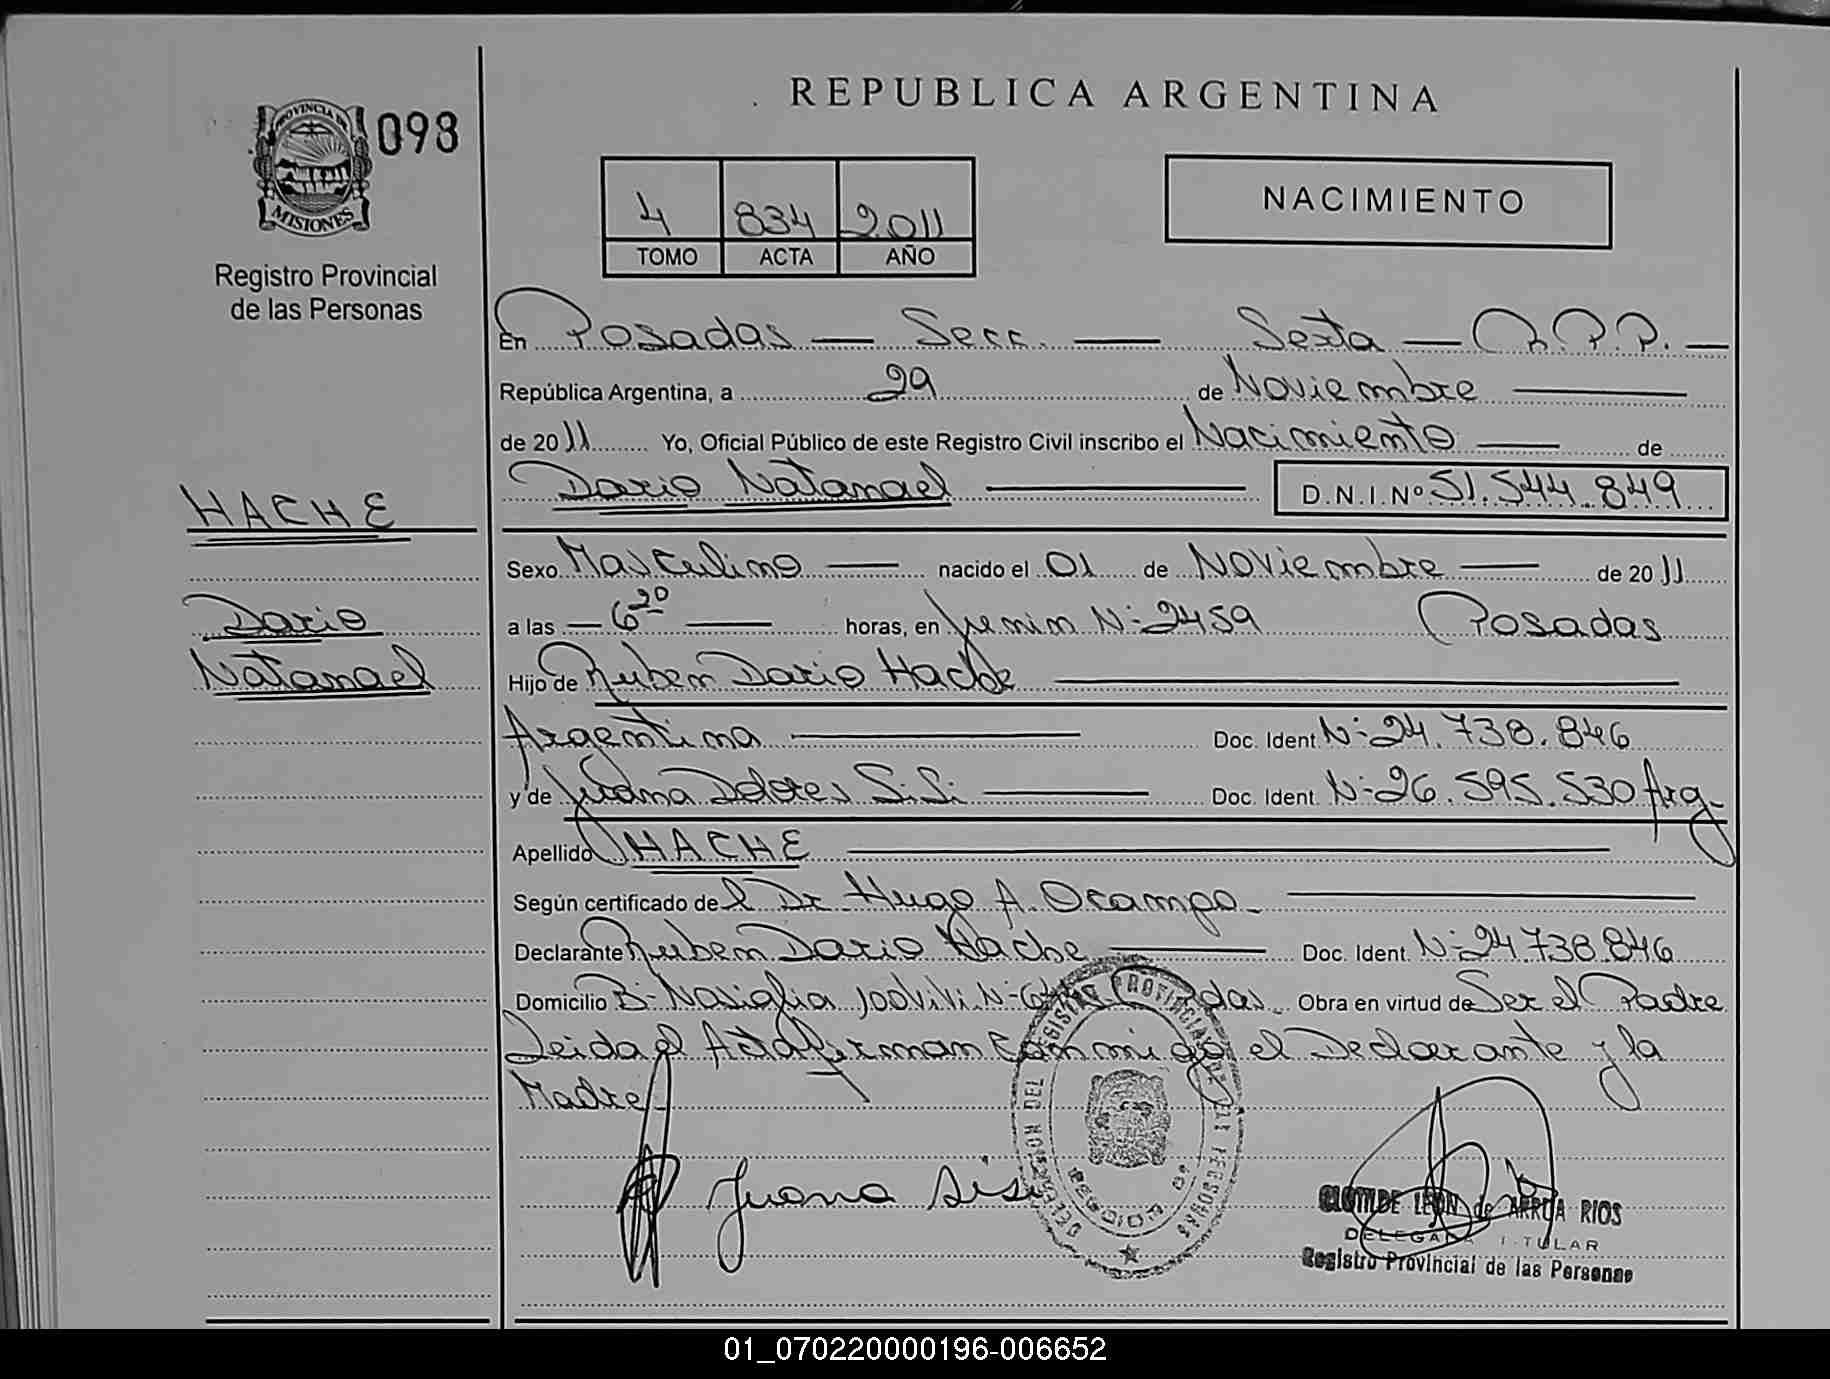 REPUBLICA ARGENTINA
PROVINCIA DE
MISIONES
098
Registro Provincial
de las Personas
4 834 2.011
TOMO ACTA AÑO
NACIMIENTO
En Posadas — Secc. — Sexta — R.P.P. —
República Argentina, a 29 de Noviembre —
de 2011 Yo, Oficial Público de este Registro Civil inscribo el Nacimiento — de
Dario Natanael — D.N.I.Nº 51.544.849
HACHE
Dario
Natanael
Sexo Masculino — nacido el 01 de Noviembre — de 2011
a las — 6 20 — horas, en Junin Nº 2459 Posadas
Hijo de Ruben Dario Hache —
Argentina — Doc. Ident. Nº 24.738.846
y de Juana Dolores SiSi — Doc. Ident. Nº 26.595.530 Arg-
Apellido HACHE —
Según certificado del Dr Hugo A. Ocampo —
Declarante Ruben Dario Hache — Doc. Ident. Nº 24.738.846
Domicilio Bº Nosiglia 100 ViVi Nº Obra en virtud de Ser el Padre
Leida el Acta firman Conmigo el Declarante y la
Madre
Juana Sisi
CLOTILDE LEON de ARRUA RIOS
DELEGADA TITULAR
Registro Provincial de las Personas
01_070220000196-006652